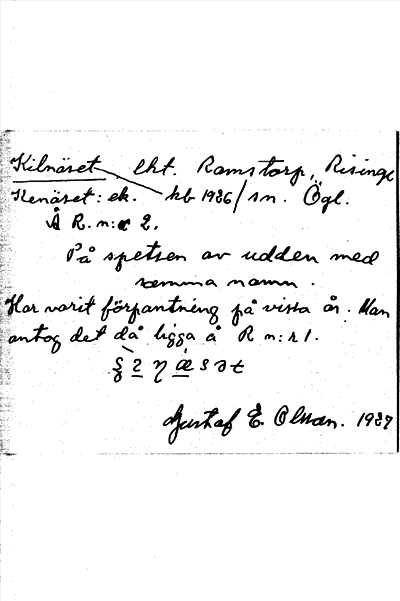 Kilnäset, lht. Ramstorp, Risinge
Kenäset: ek. kb 1926/sn. Ögl.
Å R. n:r 2.
På spetsen av udden med
samma namn.
Har varit förpantning på vissa år. Man
antog det då ligga å R n:r 1.
Gustaf E. Olsson. 1927